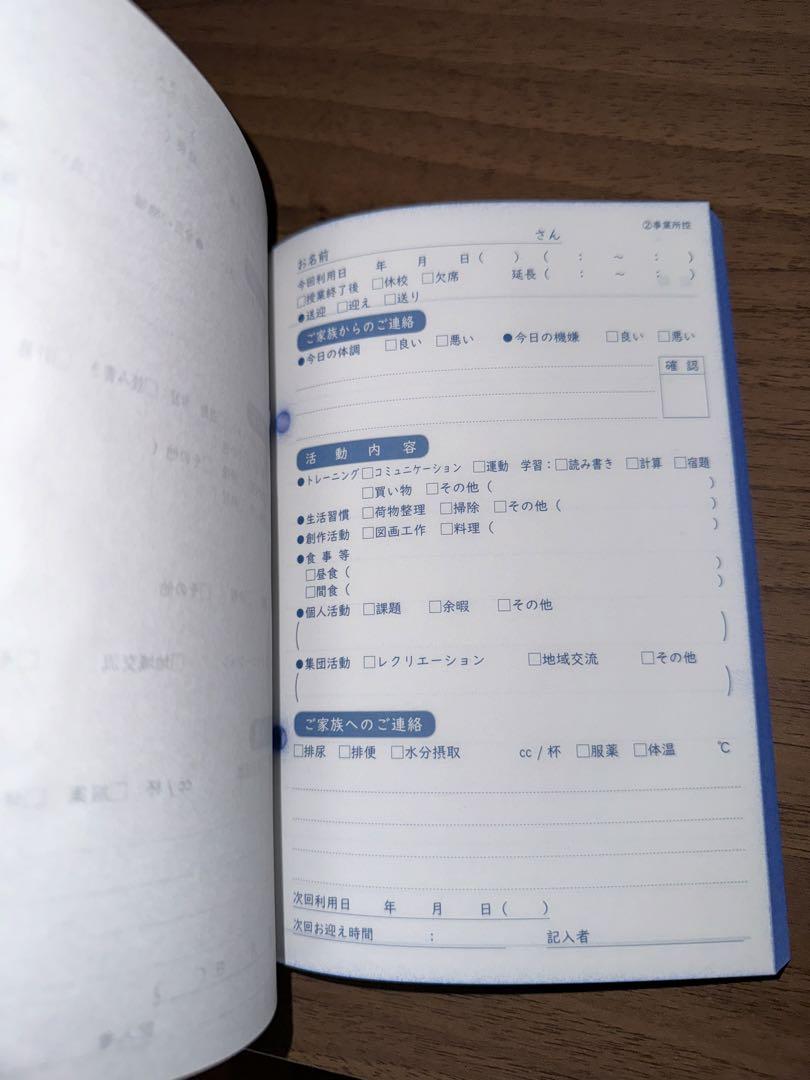 ②事業所控
お名前 さん
今回利用日 年 月 日( ) ( : ～ : )
□授業終了後 □休校 □欠席 延長( : ～ : )
●送迎 □迎え □送り
ご家族からのご連絡
●今日の体調 □良い □悪い ●今日の機嫌 □良い □悪い
確認
活動内容
●トレーニング □コミュニケーション □運動 学習：□読み書き □計算 □宿題
□買い物 □その他( )
●生活習慣 □荷物整理 □掃除 □その他( )
●創作活動 □図画工作 □料理( )
●食事等
□昼食( )
□間食( )
●個人活動 □課題 □余暇 □その他
( )
●集団活動 □レクリエーション □地域交流 □その他
( )
ご家族へのご連絡
□排尿 □排便 □水分摂取 cc / 杯 □服薬 □体温 ℃
次回利用日 年 月 日( )
次回お迎え時間 : 記入者